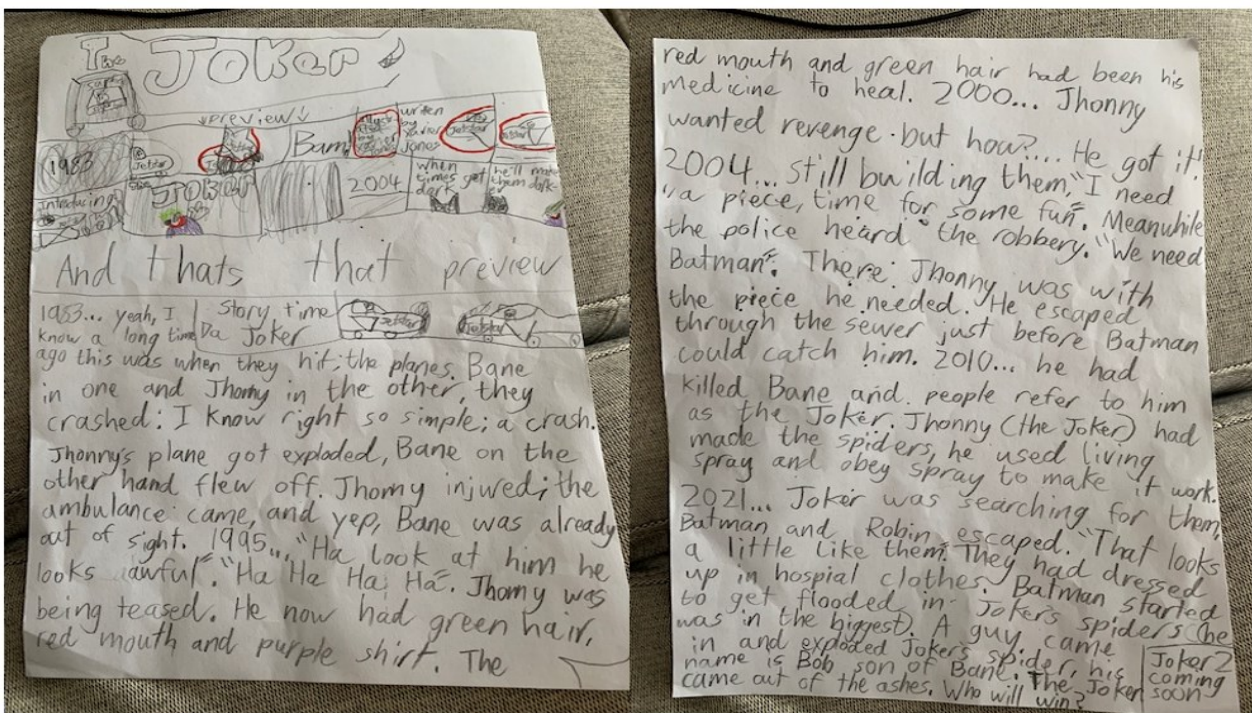 The JOKer
↓preview↓
1983
Jetstar
Bam!
writen by Xavier Jones
Jetstar
Introducing
The JOKER
2004
when times get dark
he'll make them dark-er
And thats that preview
1983... yeah, I
know a long time
Story time
Da Joker
Jetstar
Jetstar
ago this was when they hit; the planes. Bane
in one and Jhonny in the other, they
crashed: I know right so simple; a crash.
Jhonny's plane got exploded, Bane on the
other hand flew off. Jhonny injured; the
ambulance came, and yep, Bane was already
out of sight. 1995... "Ha look at him he
looks awful". "Ha Ha Ha Ha". Jhonny was
being teased. He now had green hair,
red mouth and purple shirt. The
red mouth and green hair had been his
medicine to heal. 2000... Jhonny
wanted revenge. but how?... He got it!
2004... still building them, "I need
"a piece, time for some fun". Meanwhile
the police heard the robbery. "We need
Batman". There: Jhonny was with
the piece he needed. He escaped
through the sewer just before Batman
could catch him. 2010... he had
killed Bane and people refer to him
as the Joker. Jhonny (the Joker) had
made the spiders, he used living
spray and obey spray to make it work.
2021... Joker was searching for them,
Batman and Robin escaped. "That looks
a little like them". They had dressed
up in hospial clothes. Batman started
to get flooded in Jokers spiders (he
was in the biggest). A guy came
in and exploded Jokers spider, his
name is Bob son of Bane. The Joker
came out of the ashes. Who will win?
Joker 2
coming
soon